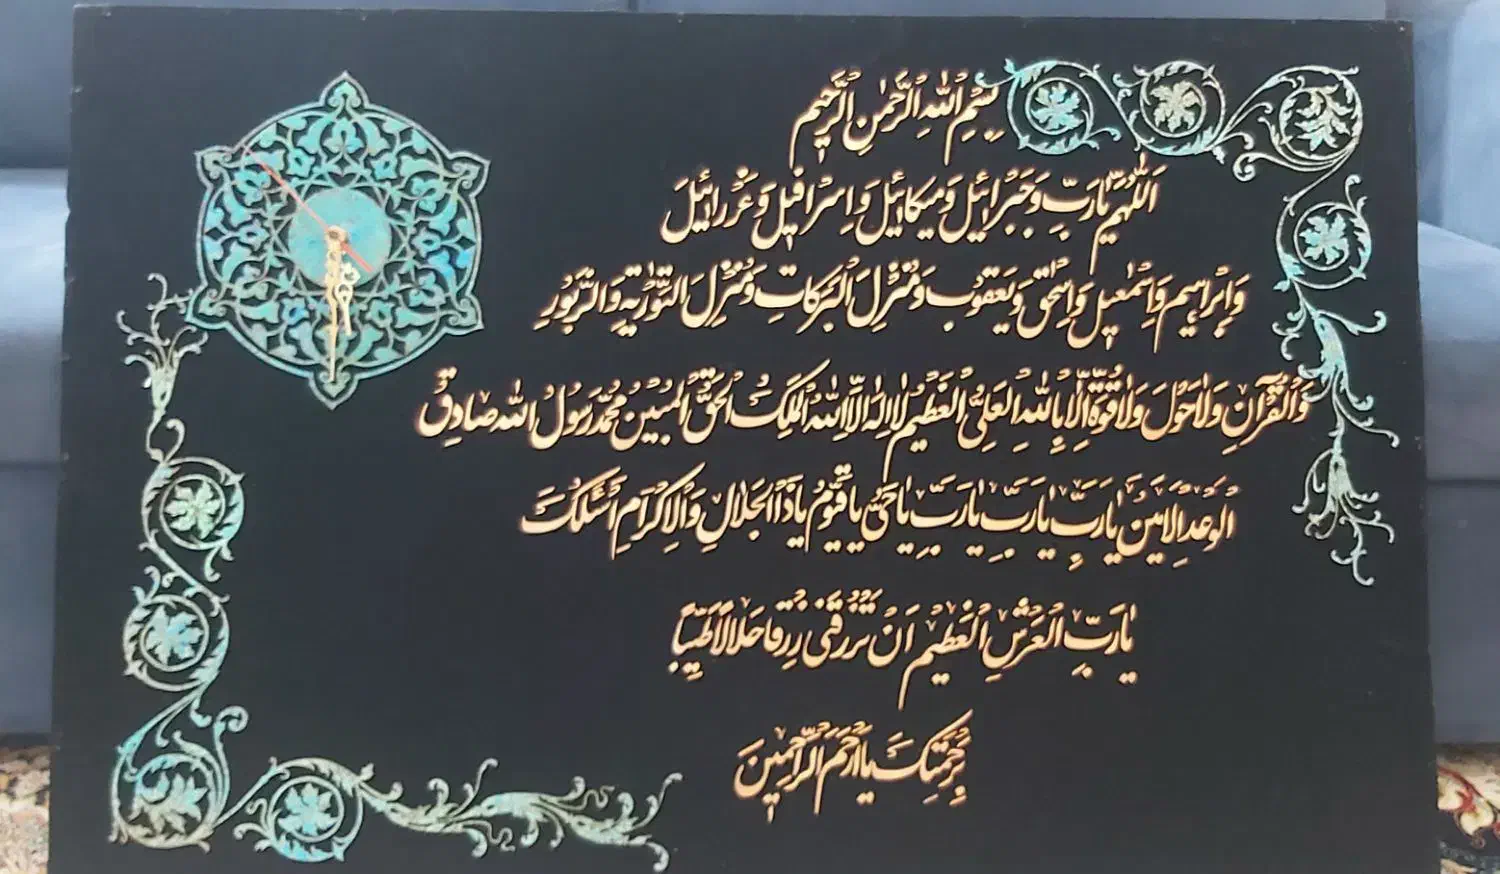 بِسْمِ اللهِ الرَّحْمٰنِ الرَّحِیمِ
اَللّٰهُمَّ یٰارَبِّ وَجَبْرٰائیٖلَ وَمیٖکٰائیٖلَ وَاِسْرٰافیٖلَ وَعَزْرٰائیٖلَ
وَاِبْرٰاهیٖم وَاِسْمٰعیٖلَ وَاِسْحٰقَ وَیَعقوُبَ وَمُنْزِلَ الْبَرَکاتِ وَمُنْزِلَ التَّوْرٰیةِ وَالزَّبُورِ
وَالْقُرْآنِ وَلاٰحَوْلَ وَلاٰقُوَّةَ اِلّٰا بِاللّٰهِ الْعَلِیُّ الْعَظیٖمُ لاٰاِلهَ اِلاَّاللهُ الْمَلِکُ الْحَقُّ الْمُبیٖنُ مُحَمَّدرَسوُلُ الله صٰادِقُ
الوَعْدِالاَمیٖنَ یٰارَبِّ یٰارَبِّ یٰارَبِّ یٰاحَیُّ یاقَیّوُمُ یاذَاالجَلاٰلِ وَالْاِکرٰامِ اَسْئَلُکَ
یٰارَبِّ الْعَرْشِ الْعَظیٖمِ اَنْ تَرْزُقَنیٖ رِزْقاً حَلاٰلاً طَیِّباً
بِرَحْمَتِکَ یٰااَرْحَمَ الرّٰاحِمیٖنَ